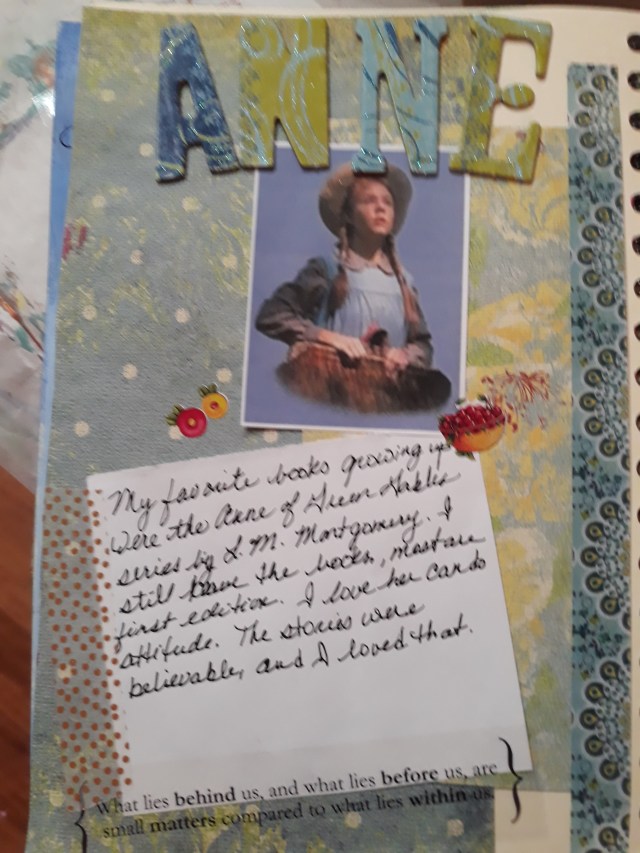 ANNE
My favorite books growing up
were the Anne of Green Gables
series by L. M. Montgomery. I
still have the books, most are
first edition. I love her can do
attitude. The stories were
believable, and I loved that.
{ What lies behind us, and what lies before us, are }
small matters compared to what lies within us.